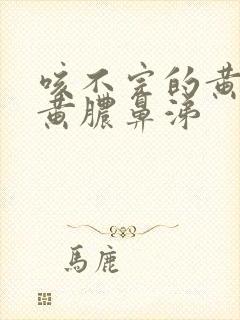 咳不完的黄
黄膿鼻涕
馬鹿